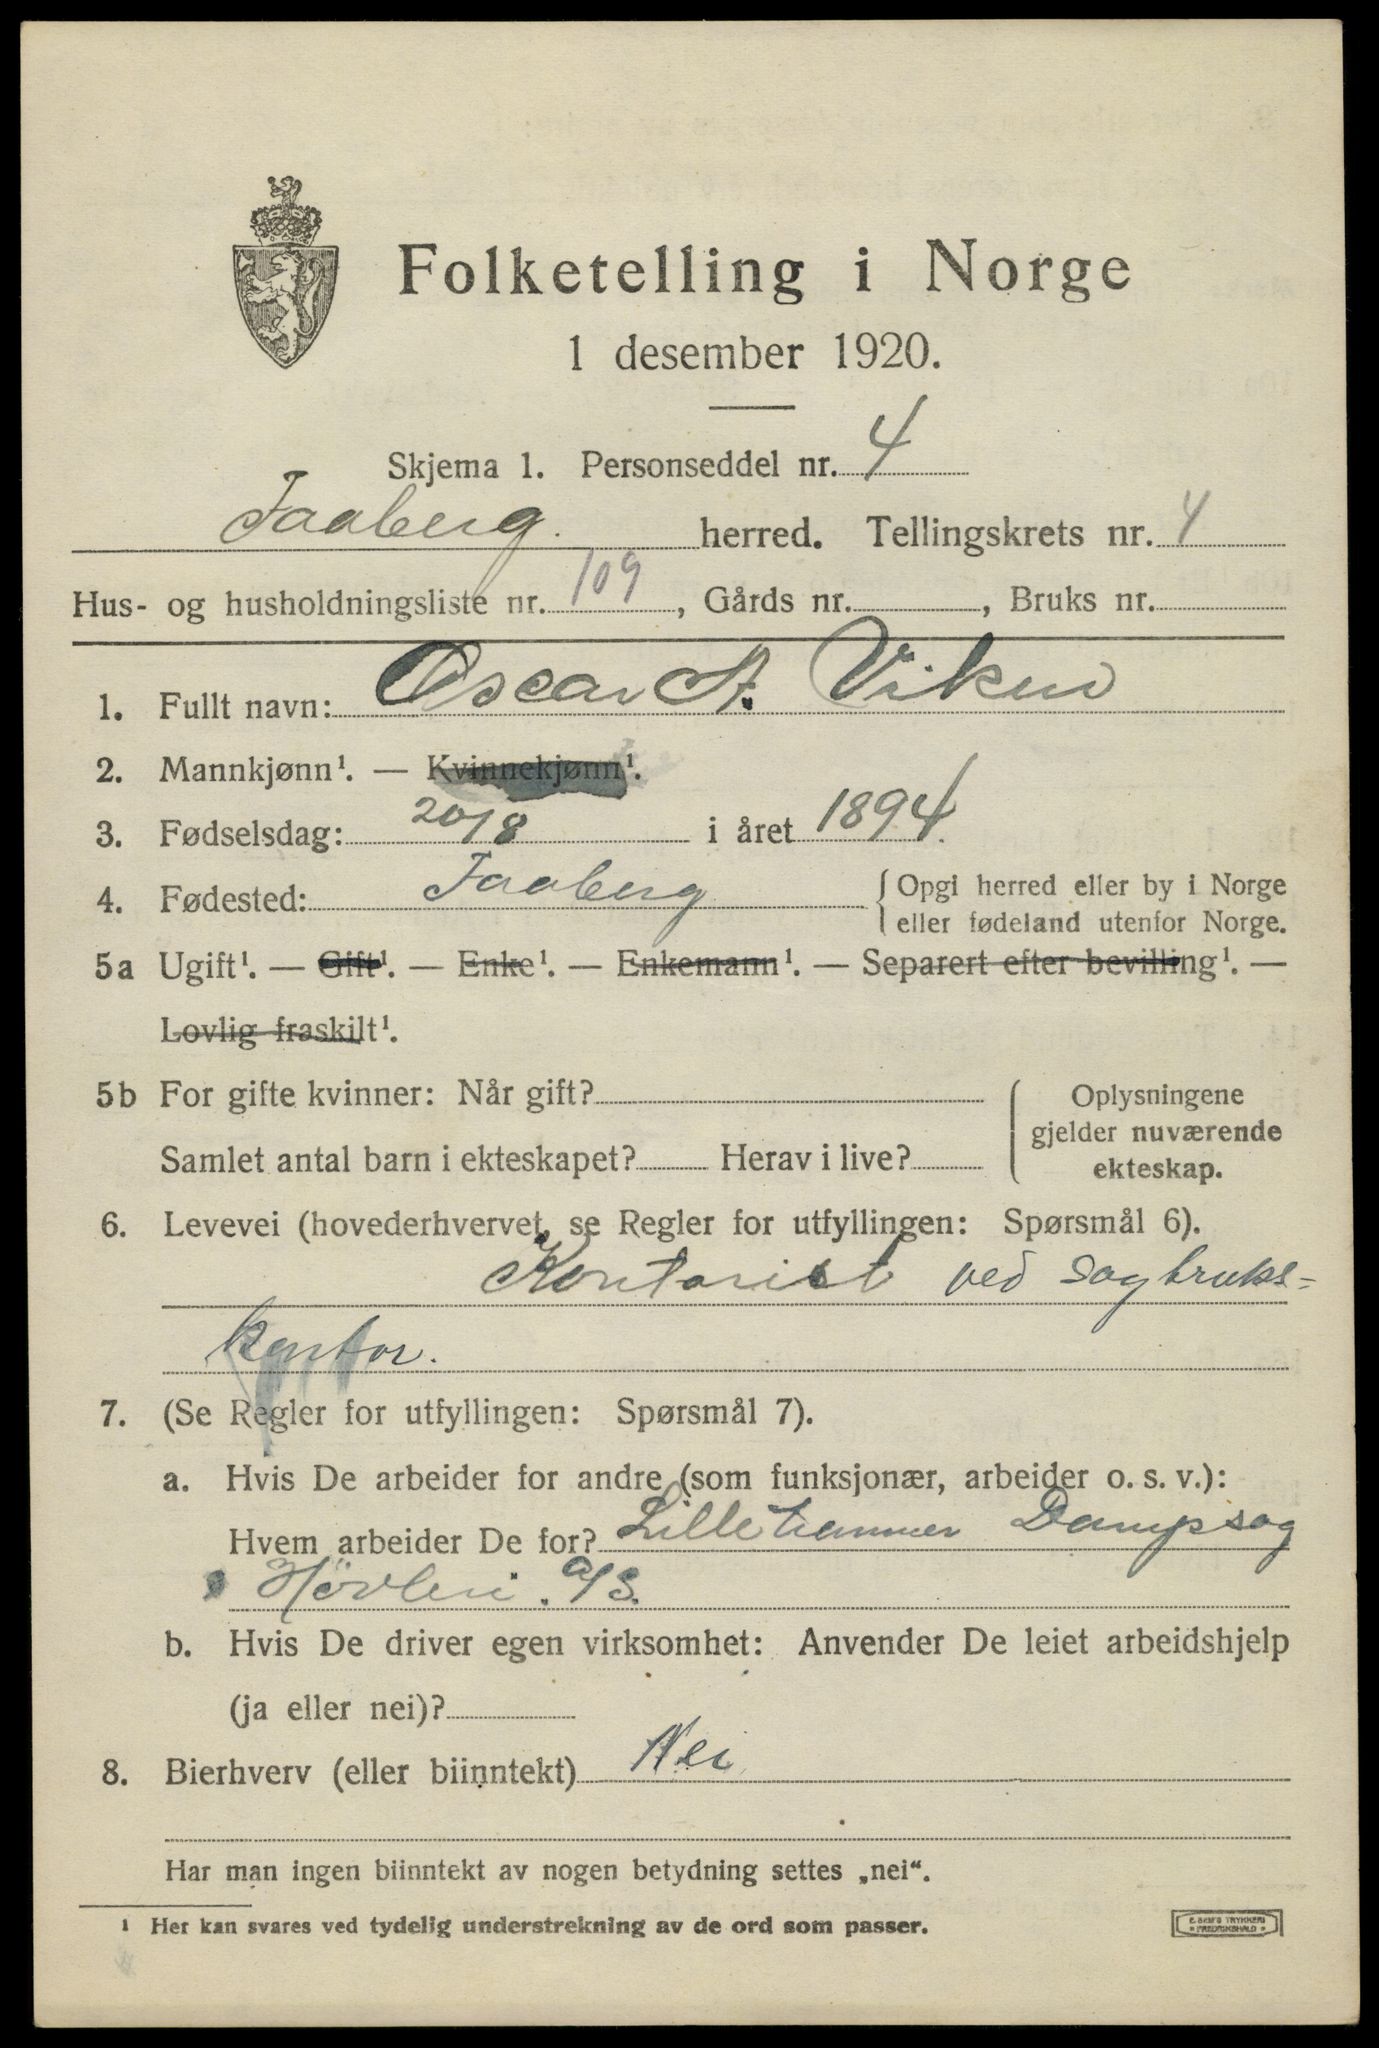 Folketelling i Norge
1 desember 1920.
Skjema 1. Personseddel nr. 4
Faaberg. herred. Tellingskrets nr. 4
Hus- og husholdningsliste nr. 109, Gårds nr. , Bruks nr.
1. Fullt navn: Oscar A. Viken
2. Mannkjønn¹. — Kvinnekjønn¹.
3. Fødselsdag: 20/8 i året 1894.
4. Fødested: Faaberg { Opgi herred eller by i Norge
eller fødeland utenfor Norge.
5a Ugift¹. — Gift¹. — Enke¹. — Enkemann¹. — Separert efter bevilling¹. —
Lovlig fraskilt¹.
5b For gifte kvinner: Når gift? Oplysningene
gjelder nuværende
Samlet antal barn i ekteskapet? Herav i live? ekteskap.
6. Levevei (hovederhvervet, se Regler for utfyllingen: Spørsmål 6).
Kontorist ved Sagbruks-
kontor.
7. (Se Regler for utfyllingen: Spørsmål 7).
a. Hvis De arbeider for andre (som funksjonær, arbeider o. s. v.):
Hvem arbeider De for? Lillehammer Dampsag
Høvleri. A/S.
b. Hvis De driver egen virksomhet: Anvender De leiet arbeidshjelp
(ja eller nei)?
8. Bierhverv (eller biinntekt) Nei
Har man ingen biinntekt av nogen betydning settes „nei“.
¹ Her kan svares ved tydelig understrekning av de ord som passer.
E. SEM'S TRYKKERI
FREDRIKSHALD